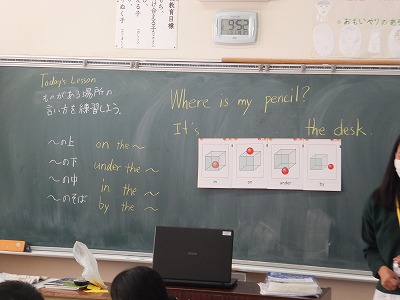 教育目標
9:52
Today's Lesson
ものがある場所の
言い方を練習しよう。
〜の上 on the 〜
〜の下 under the 〜
〜の中 in the 〜
〜のそば by the 〜
Where is my pencil?
It's the desk.
in on under by